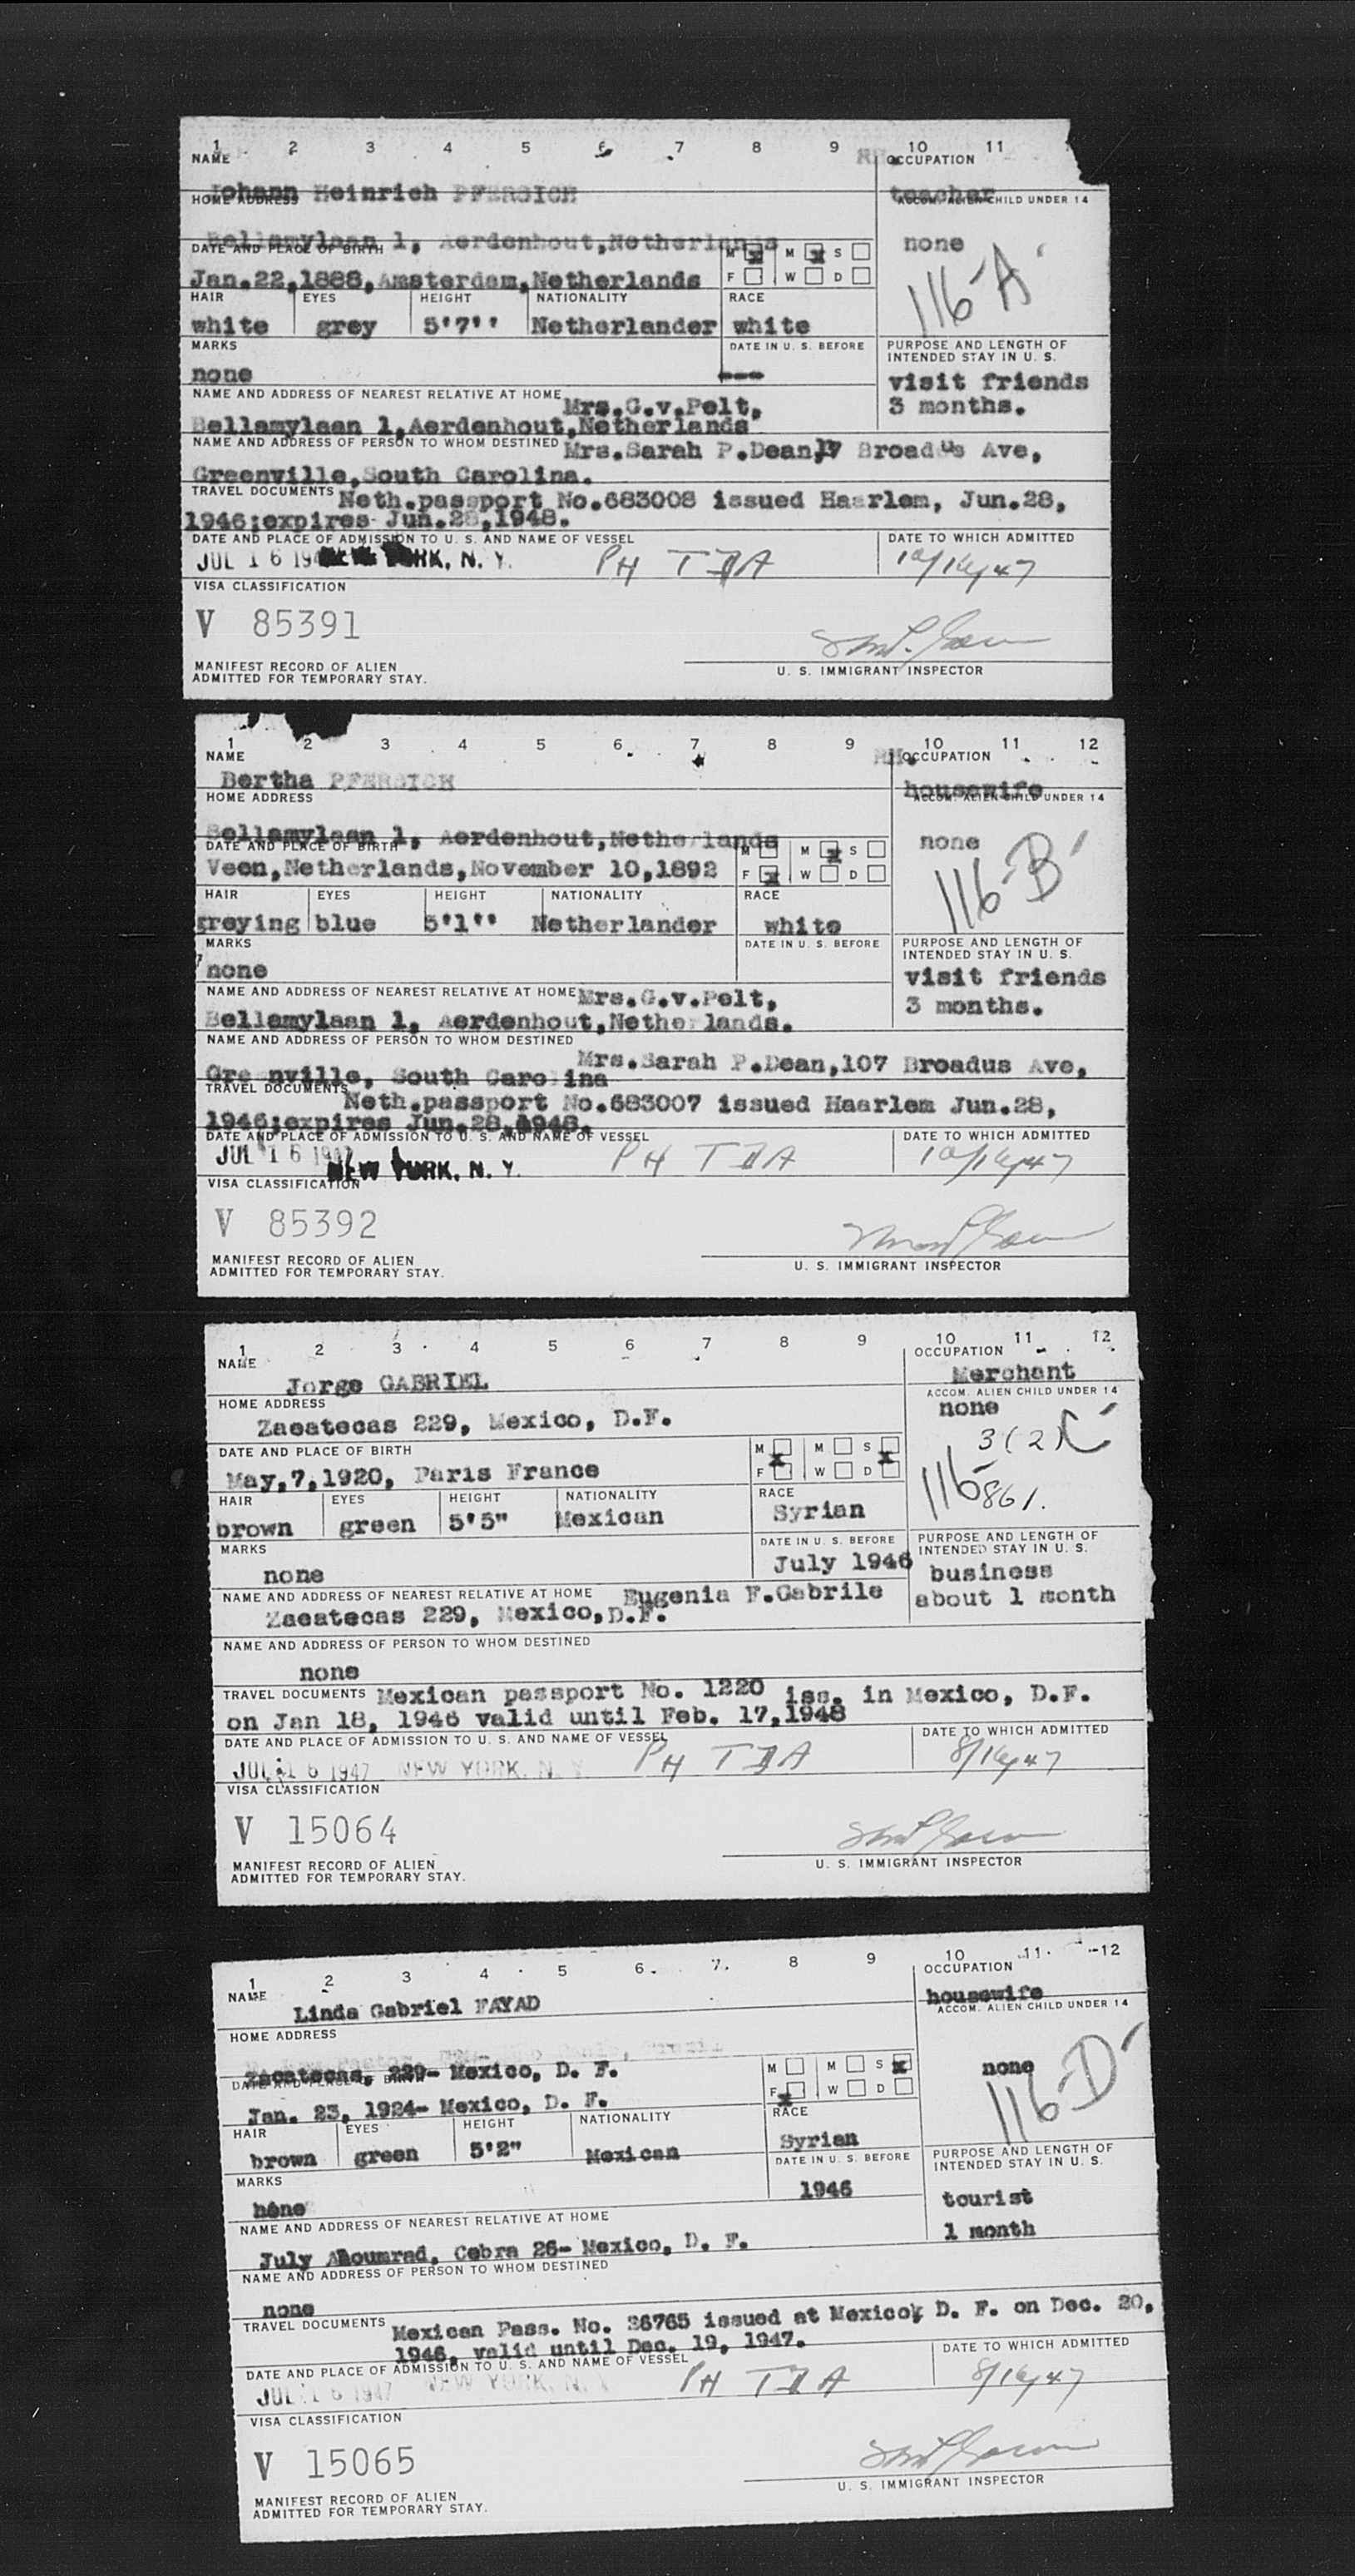 1 2 3 4 5 6 7 8 9 10 11
NAME OCCUPATION
Johann Heinrich PFERSICH teacher
HOME ADDRESS ACCOM. ALIEN CHILD UNDER 14
Bellamylaan 1, Aerdenhout,Netherlands none
DATE AND PLACE OF BIRTH M x M x S
Jan.22,1888,Amsterdam,Netherlands F W D
116-A
HAIR EYES HEIGHT NATIONALITY RACE
white grey 5'7'' Netherlander white
MARKS DATE IN U. S. BEFORE PURPOSE AND LENGTH OF
INTENDED STAY IN U. S.
none --- visit friends
NAME AND ADDRESS OF NEAREST RELATIVE AT HOME Mrs.G.v.Pelt, 3 months.
Bellamylaan 1,Aerdenhout,Netherlands
NAME AND ADDRESS OF PERSON TO WHOM DESTINED Mrs.Sarah P.Dean, Broadus Ave,
Greenville,South Carolina.
TRAVEL DOCUMENTS Neth.passport No.683008 issued Haarlem, Jun.28,
1946;expires Jun.28,1948.
DATE AND PLACE OF ADMISSION TO U. S. AND NAME OF VESSEL DATE TO WHICH ADMITTED
JUL 16 194 NEW YORK, N. Y. PH 10/16/47
VISA CLASSIFICATION
V 85391
MANIFEST RECORD OF ALIEN
ADMITTED FOR TEMPORARY STAY. U. S. IMMIGRANT INSPECTOR
1 2 3 4 5 6 7 8 9 10 11 12
NAME OCCUPATION
Bertha PFERSICH housewife
HOME ADDRESS ACCOM. ALIEN CHILD UNDER 14
Bellamylaan 1, Aerdenhout,Netherlands none
DATE AND PLACE OF BIRTH M M x S
Veen,Netherlands,November 10,1892 F x W D
116-B
HAIR EYES HEIGHT NATIONALITY RACE
greying blue 5'1'' Netherlander white
MARKS DATE IN U. S. BEFORE PURPOSE AND LENGTH OF
INTENDED STAY IN U. S.
none visit friends
NAME AND ADDRESS OF NEAREST RELATIVE AT HOME Mrs.G.v.Pelt, 3 months.
Bellamylaan 1, Aerdenhout,Netherlands.
NAME AND ADDRESS OF PERSON TO WHOM DESTINED
Mrs.Sarah P.Dean,107 Broadus Ave,
Greenville, South Carolina
TRAVEL DOCUMENTS Neth.passport No.683007 issued Haarlem Jun.28,
1946;expires Jun.28,1948.
DATE AND PLACE OF ADMISSION TO U. S. AND NAME OF VESSEL DATE TO WHICH ADMITTED
JUL 16 1947 NEW YORK, N. Y. PH 10/16/47
VISA CLASSIFICATION
V 85392
MANIFEST RECORD OF ALIEN
ADMITTED FOR TEMPORARY STAY. U. S. IMMIGRANT INSPECTOR
1 2 3 4 5 6 7 8 9 10 11 12
NAME OCCUPATION
Jorge GABRIEL Merchant
HOME ADDRESS ACCOM. ALIEN CHILD UNDER 14
Zacatecas 229, Mexico, D.F. none
3(2) C
DATE AND PLACE OF BIRTH M x M S x
May,7,1920, Paris France F W D
116-
861.
HAIR EYES HEIGHT NATIONALITY RACE
brown green 5'5" Mexican Syrian
MARKS DATE IN U. S. BEFORE PURPOSE AND LENGTH OF
INTENDED STAY IN U. S.
none July 1946 business
NAME AND ADDRESS OF NEAREST RELATIVE AT HOME Eugenia F.Gabrile about 1 month
Zacatecas 229, Mexico,D.F.
NAME AND ADDRESS OF PERSON TO WHOM DESTINED
none
TRAVEL DOCUMENTS Mexican passport No. 1220 iss. in Mexico, D.F.
on Jan 18, 1946 valid until Feb. 17,1948
DATE AND PLACE OF ADMISSION TO U. S. AND NAME OF VESSEL DATE TO WHICH ADMITTED
JUL 16 1947 NEW YORK, N. Y. PH 8/16/47
VISA CLASSIFICATION
V 15064
MANIFEST RECORD OF ALIEN
ADMITTED FOR TEMPORARY STAY. U. S. IMMIGRANT INSPECTOR
1 2 3 4 5 6 7 8 9 10 11 12
NAME OCCUPATION
Linda Gabriel FAYAD housewife
HOME ADDRESS ACCOM. ALIEN CHILD UNDER 14
Zacatecas, 229- Mexico, D. F. none
DATE AND PLACE OF BIRTH M M S x
Jan. 23, 1924- Mexico, D. F. F x W D
116-D
HAIR EYES HEIGHT NATIONALITY RACE
brown green 5'2" Mexican Syrian
MARKS DATE IN U. S. BEFORE PURPOSE AND LENGTH OF
INTENDED STAY IN U. S.
none 1946 tourist
NAME AND ADDRESS OF NEAREST RELATIVE AT HOME 1 month
July Ahoumrad, Cobra 26- Mexico, D. F.
NAME AND ADDRESS OF PERSON TO WHOM DESTINED
none
TRAVEL DOCUMENTS Mexican Pass. No. 36765 issued at Mexico, D. F. on Dec. 20,
1946, valid until Dec. 19, 1947.
DATE AND PLACE OF ADMISSION TO U. S. AND NAME OF VESSEL DATE TO WHICH ADMITTED
JUL 16 1947 NEW YORK, N. Y. PH 8/16/47
VISA CLASSIFICATION
V 15065
MANIFEST RECORD OF ALIEN
ADMITTED FOR TEMPORARY STAY. U. S. IMMIGRANT INSPECTOR